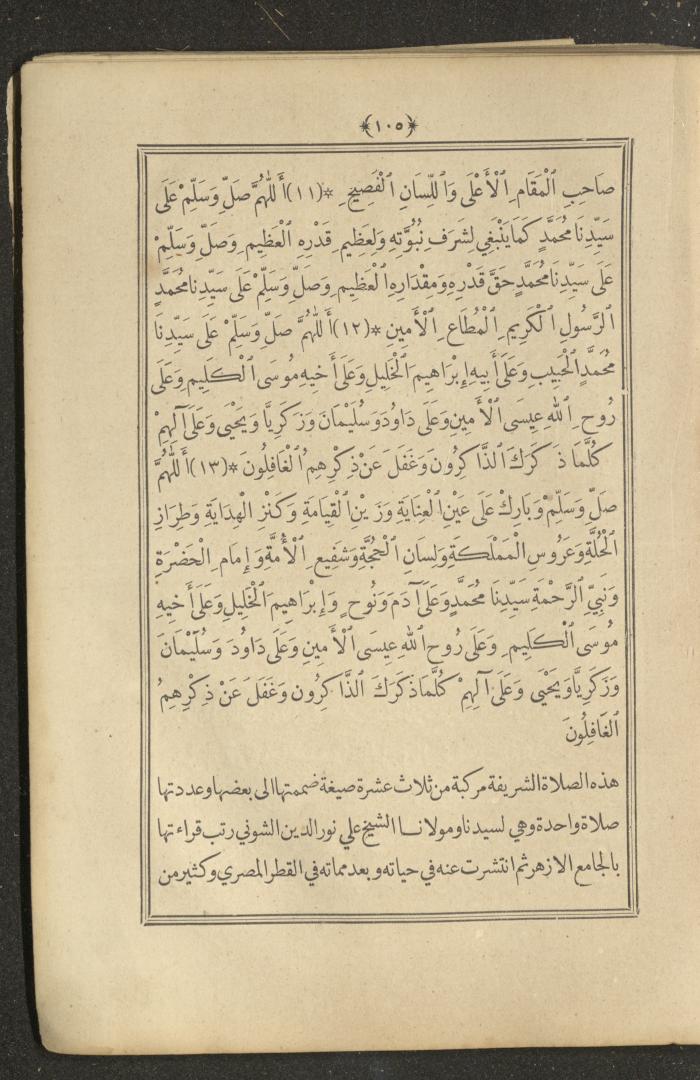 ﴿١٠٥﴾
صَاحِبِ الْمَقَامِ الْأَعْلَى وَاللِّسَانِ الْفَصِيحِ *(١١) أَللّٰهُمَّ صَلِّ وَسَلِّمْ عَلَى
سَيِّدِنَا مُحَمَّدٍ كَمَا يَنْبَغِي لِشَرَفِ نُبُوَّتِهِ وَلِعَظِيمِ قَدْرِهِ الْعَظِيمِ وَصَلِّ وَسَلِّمْ
عَلَى سَيِّدِنَا مُحَمَّدٍ حَقَّ قَدْرِهِ وَمِقْدَارِهِ الْعَظِيمِ وَصَلِّ وَسَلِّمْ عَلَى سَيِّدِنَا مُحَمَّدٍ
الرَّسُولِ الْكَرِيمِ الْمُطَاعِ الْأَمِينِ *(١٢) أَللّٰهُمَّ صَلِّ وَسَلِّمْ عَلَى سَيِّدِنَا
مُحَمَّدٍ الْحَبِيبِ وَعَلَى أَبِيهِ إِبْرَاهِيمَ الْخَلِيلِ وَعَلَى أَخِيهِ مُوسَى الْكَلِيمِ وَعَلَى
رُوحِ اللهِ عِيسَى الْأَمِينِ وَعَلَى دَاوُدَ وَسُلَيْمَانَ وَزَكَرِيَّا وَيَحْيَى وَعَلَى آلِهِمْ
كُلَّمَا ذَكَرَكَ الذَّاكِرُونَ وَغَفَلَ عَنْ ذِكْرِهِمُ الْغَافِلُونَ *(١٣) أَللّٰهُمَّ
صَلِّ وَسَلِّمْ وَبَارِكْ عَلَى عَيْنِ الْعِنَايَةِ وَزَيْنِ الْقِيَامَةِ وَكَنْزِ الْهِدَايَةِ وَطِرَازِ
الْحُلَّةِ وَعَرُوسِ الْمَمْلَكَةِ وَلِسَانِ الْحُجَّةِ وَشَفِيعِ الْأُمَّةِ وَإِمَامِ الْحَضْرَةِ
وَنَبِيِّ الرَّحْمَةِ سَيِّدِنَا مُحَمَّدٍ وَعَلَى آدَمَ وَنُوحٍ وَإِبْرَاهِيمَ الْخَلِيلِ وَعَلَى أَخِيهِ
مُوسَى الْكَلِيمِ وَعَلَى رُوحِ اللهِ عِيسَى الْأَمِينِ وَعَلَى دَاوُدَ وَسُلَيْمَانَ
وَزَكَرِيَّا وَيَحْيَى وَعَلَى آلِهِمْ كُلَّمَا ذَكَرَكَ الذَّاكِرُونَ وَغَفَلَ عَنْ ذِكْرِهِمُ
الْغَافِلُونَ
هذه الصلاة الشريفة مركبة من ثلاث عشرة صيغة ضممتها الى بعضها وعددتها
صلاة واحدة وهي لسيدنا ومولانا الشيخ علي نور الدين الشوني رتب قراءتها
بالجامع الازهر ثم انتشرت عنه في حياته وبعد مماته في القطر المصري وكثير من